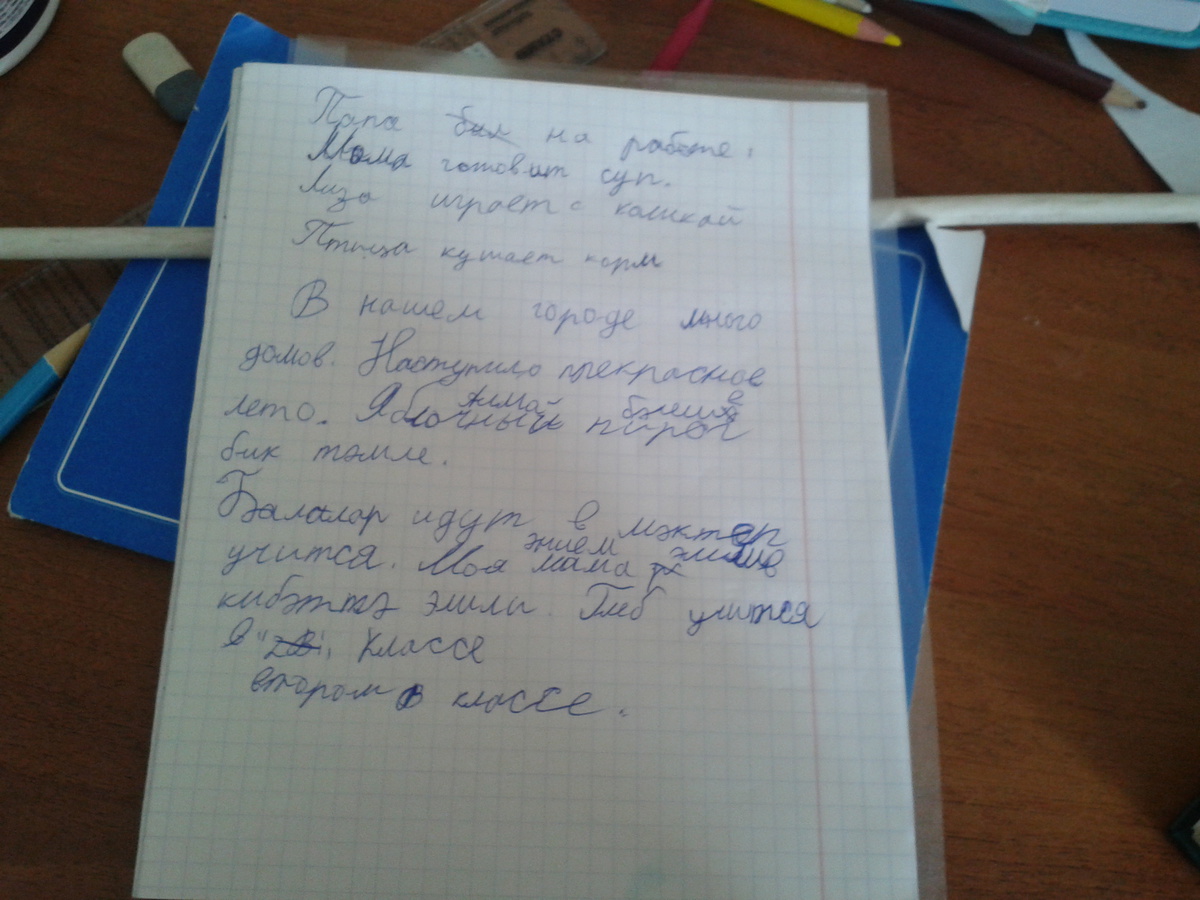 Папа был на работе.
Мама готовит суп.
Лиза играет с
Птица кушает корм
В нашем городе много
домов. Наступило прекрасное
лето. Яблочный пирог
алма бәлеше
бик тәмле.
Балалар идут в мәктәп
учится. Моя мама
әнием әшли
кибәттә эшли. Глеб учится
в "2в", классе
втором в классе.